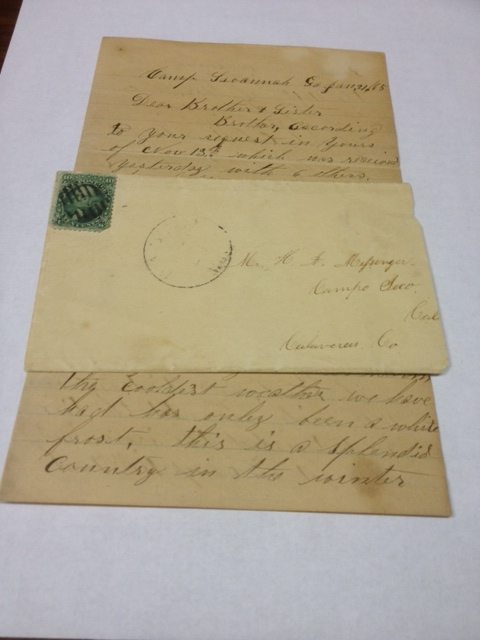 Camp Savannah Ga Jan 11/65
Dear Brother & Sister
Brother, according
to your request in yours
of Nov 13th which was received
yesterday with 6 others.
Mr. H A Messenger
Campo Seco
Cal
Calaveras Co
the Couldest weather we have
had has only been a white
frost. this is a splendid
Country in the winter